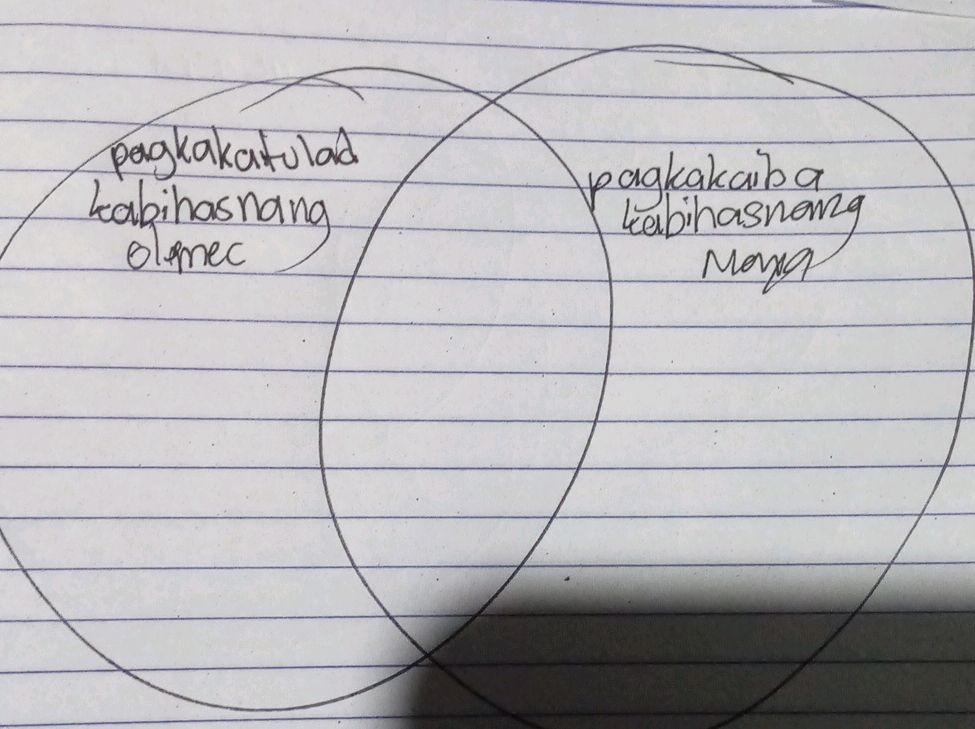 pagkakatulad
kabihasnang
olmec
pagkakaiba
kabihasnang
Maya